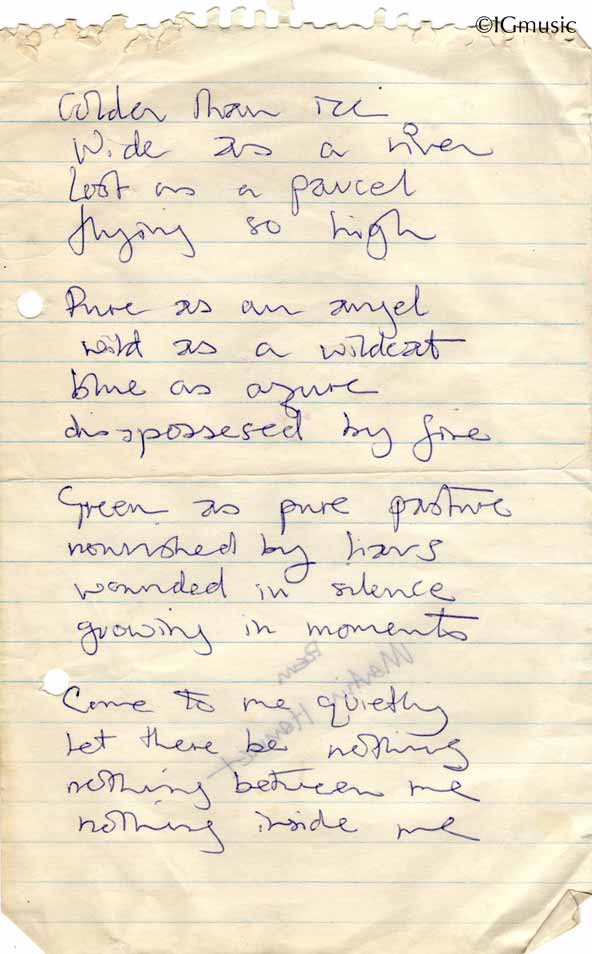 ©IGmusic
Colder than ice
Wide as a river
Lost as a parcel
flying so high
Pure as an angel
wild as a wildcat
blue as azure
dispossesed by fire
Green as pure pasture
nourished by liars
wounded in silence
growing in moments
Martin Hannet
Come to me quietly
Let there be nothing
nothing between me
nothing inside me